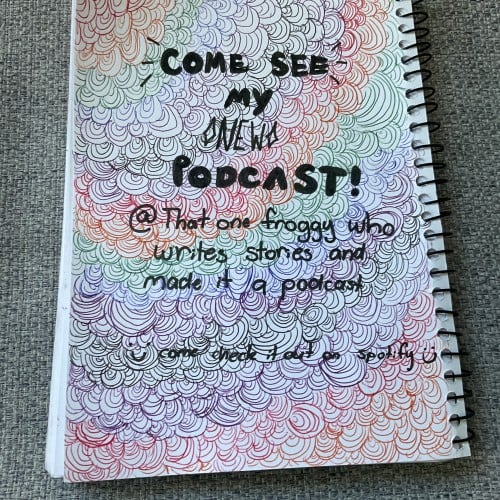 COME SEE
MY
NEW
PODCAST!
@ That one froggy who
writes stories and
made it a podcast
come check it out on spotify